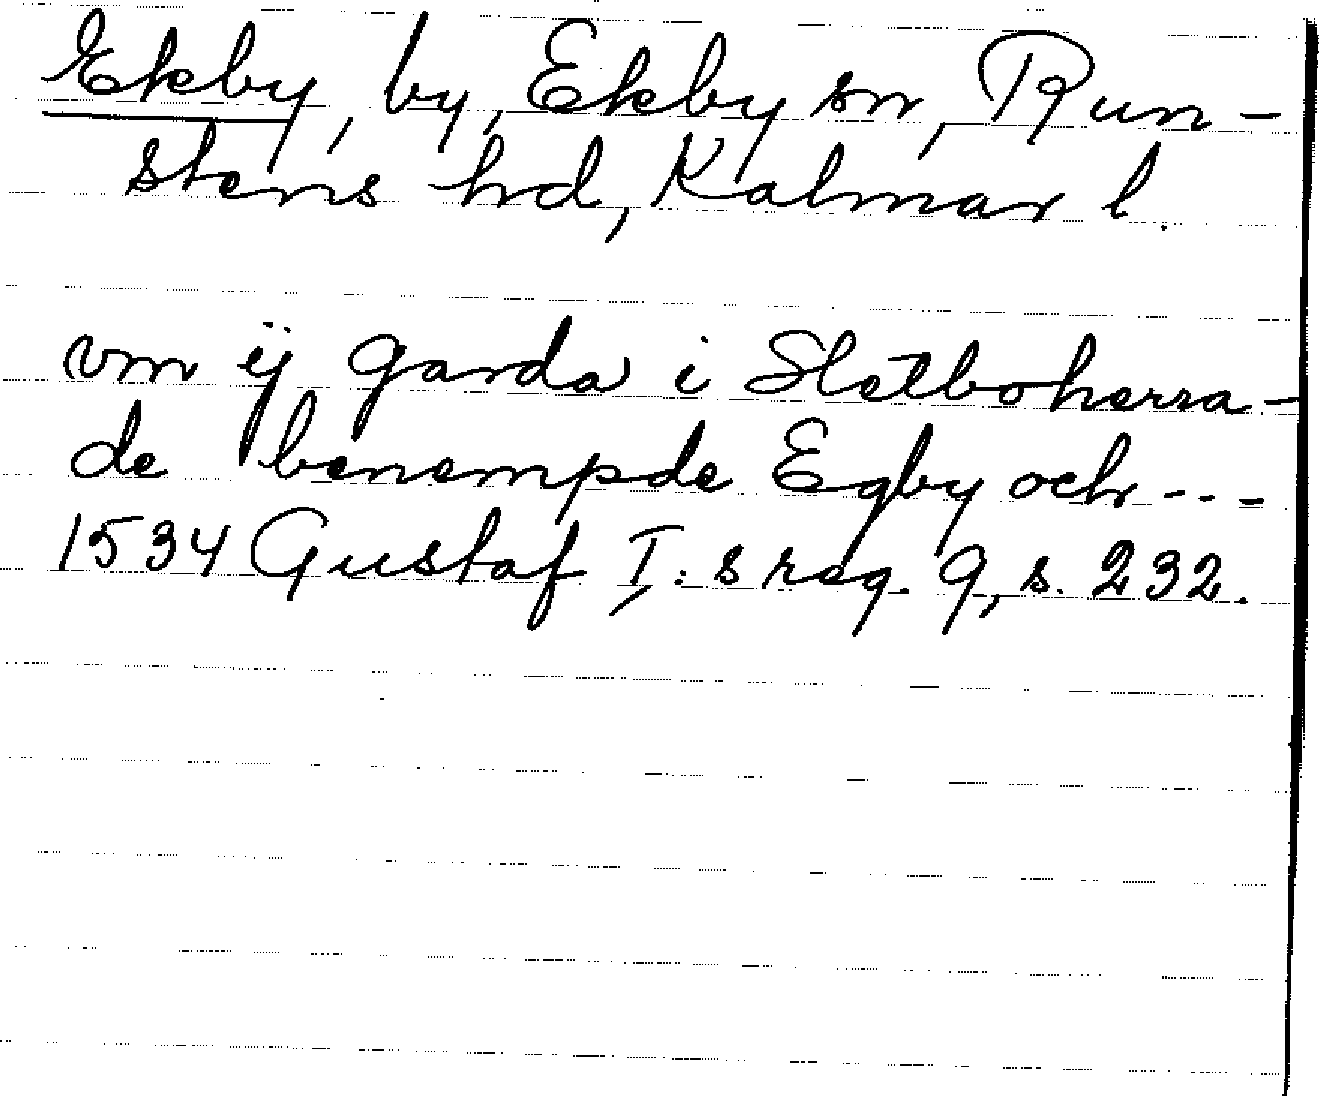 Ekby, by, Ekby sn, Run-
stens hd, Kalmar l.
vm ij garda i Sletboherra-
de benempde Egby och ---
1534 Gustaf I:s reg. 9, s. 232.